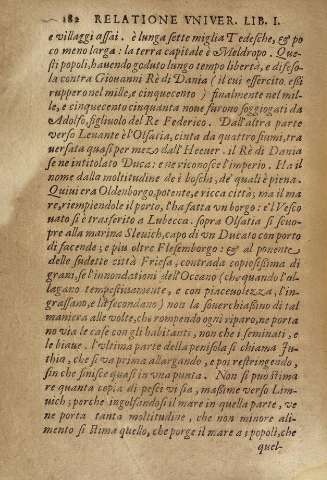 182 RELATIONE VNIVER. LIB. I.
e villaggi assai. è lunga sette miglia Tedesche, & po
co meno larga: la terra capitale è Meldropo. Que-
sti popoli, hauendo goduto lungo tempo libertà, e difeso-
la contra Giouanni Rè di Dania (il cui essercito essi
rupperο nel mille, e cinquecento) finalmente nel mil-
le, e cinquecento cinquanta noue furono soggiogati da
Adolfo, figliuolo del Re Federico. Dall'altra parte
verso Leuante è l'Olsatia, cinta da quattro fiumi, tra
uersata quasi per mezo dall'Hecuer. il Rè di Dania
se ne intitolato Duca: e ne riconosce l'imperio. Ha il
nome dalla moltitudine de i boschi, de' quali è piena.
Quiui era Oldenborgo, potente, e ricca città; ma il ma
re, riempiendole il porto, l'ha fatta vn borgo: e'l Vesco
uato si è trasferito a Lubecca. sopra Olsatia si scuo-
pre alla marina Sleuich, capo di un Ducato con porto
di facende; e piu oltre Flesemborgo: & al ponente
delle sudette città Frisa, contrada copiosissima di
grani, se l'innondationi dell'Oceano (che quando l'al-
lagano tempestiuamente, e con piaceuolezza, l'in-
grassano, e la fecondano) non la souerchiassino di tal
maniera alle volte, che rompendo ogni riparo, ne porta
no via le case con gli habitanti, non che i seminati, e
le biaue. l'vltima parte della penisola si chiama Iu-
thia, che si va prima allargando, e poi restringendo,
sin che finisce quasi in vna punta. Non si può stima
re quanta copia di pesci vi sia, massime verso Lim-
uich; perche ingolfandosi il mare in quella parte, ve
ne porta tanta moltitudine, che non minore ali-
mento si stima quello, che porge il mare a i popoli, che
quel-